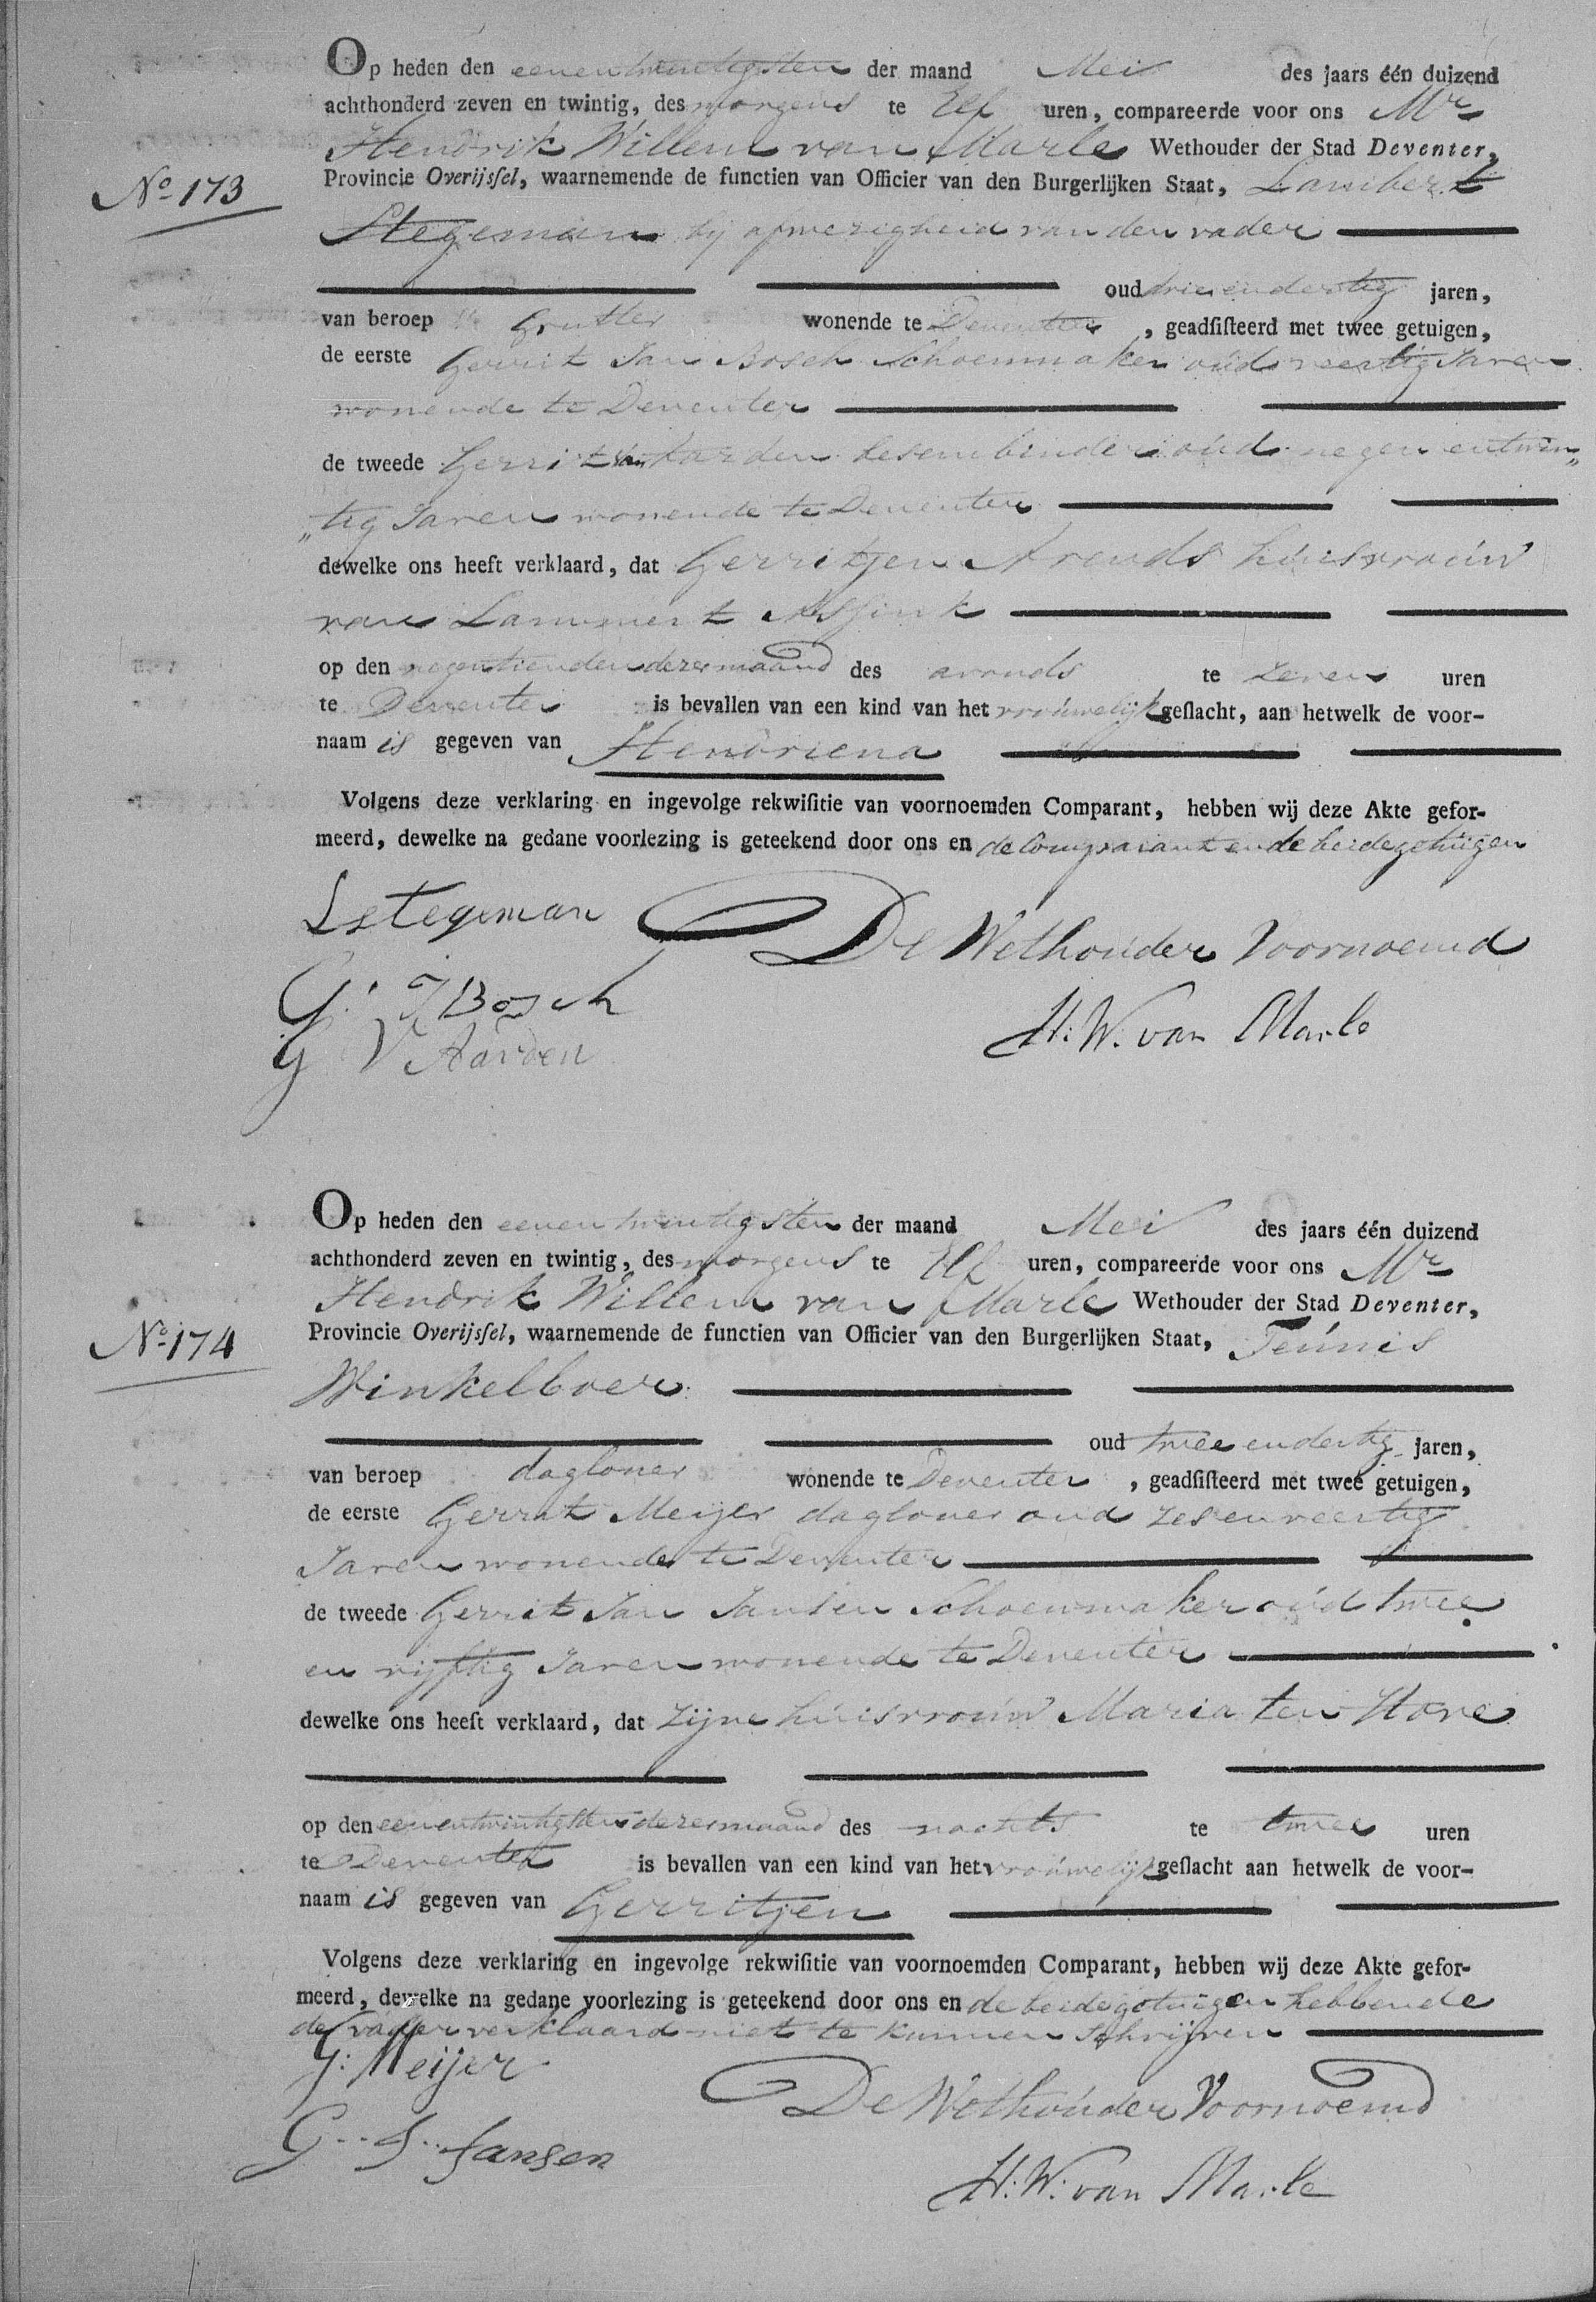 Op heden den eenentwintigsten der maand Mei des jaars één duizend
achthonderd zeven en twintig, des morgens te Elf uren, compareerde voor ons Mr
Hendrik Willem van Marle Wethouder der Stad Deventer,
Provincie Overijsſel, waarnemende de functien van Officier van den Burgerlijken Staat, Lambert
No 173
Stegeman bij afwezigheid van den vader
oud drieendertig jaren,
van beroep Grutter wonende te Deventer, geadſiſteerd met twee getuigen,
de eerste Gerrit Jan Bosch Schoenmaker oud veertig Jaren
wonende te Deventer
de tweede Gerrit van Aarden besembinder oud negen entwin„
„tig Jaren wonende te Deventer
dewelke ons heeft verklaard, dat Gerritjen Arends huisvrouw
van Lammert Assink
op den negentienden dezer maand des avonds te zeven uren
te Deventer is bevallen van een kind van het vrouwelijk geſlacht, aan hetwelk de voor-
naam is gegeven van Hendriena
Volgens deze verklaring en ingevolge rekwiſitie van voornoemden Comparant, hebben wij deze Akte gefor-
meerd, dewelke na gedane voorlezing is geteekend door ons en de Comparant en de beide getuigen
LStegeman
De Wethouder Voornoemd
G. J Bosch
H. W. van Marle
G V Aarden
Op heden den eenentwintigsten der maand Mei des jaars één duizend
achthonderd zeven en twintig, des morgens te Elf uren, compareerde voor ons Mr
Hendrik Willem van Marle Wethouder der Stad Deventer,
Provincie Overijsſel, waarnemende de functien van Officier van den Burgerlijken Staat, Teunis
No 174
Winkelboer
oud twee endertig jaren,
van beroep dagloner wonende te Deventer, geadſiſteerd met twee getuigen,
de eerste Gerrit Meijer dagloner oud zesenveertig
Jaren wonende te Deventer
de tweede Gerrit Jan Jansen Schoenmaker oud twee
en vijftig Jaren wonende te Deventer
dewelke ons heeft verklaard, dat zijne huisvrouw Maria ten Hove
op den eenentwintigsten dezer maand des nachts te twee uren
te Deventer is bevallen van een kind van het vrouwelijk geſlacht aan hetwelk de voor-
naam is gegeven van Gerritjen
Volgens deze verklaring en ingevolge rekwiſitie van voornoemden Comparant, hebben wij deze Akte gefor-
meerd, dewelke na gedane voorlezing is geteekend door ons en de beide getuigen hebbende
de vader verklaard niet te kunnen schrijven
G: Meijer
De Wethouder Voornoemd
G.. J.. Jansen
H. W. van Marle